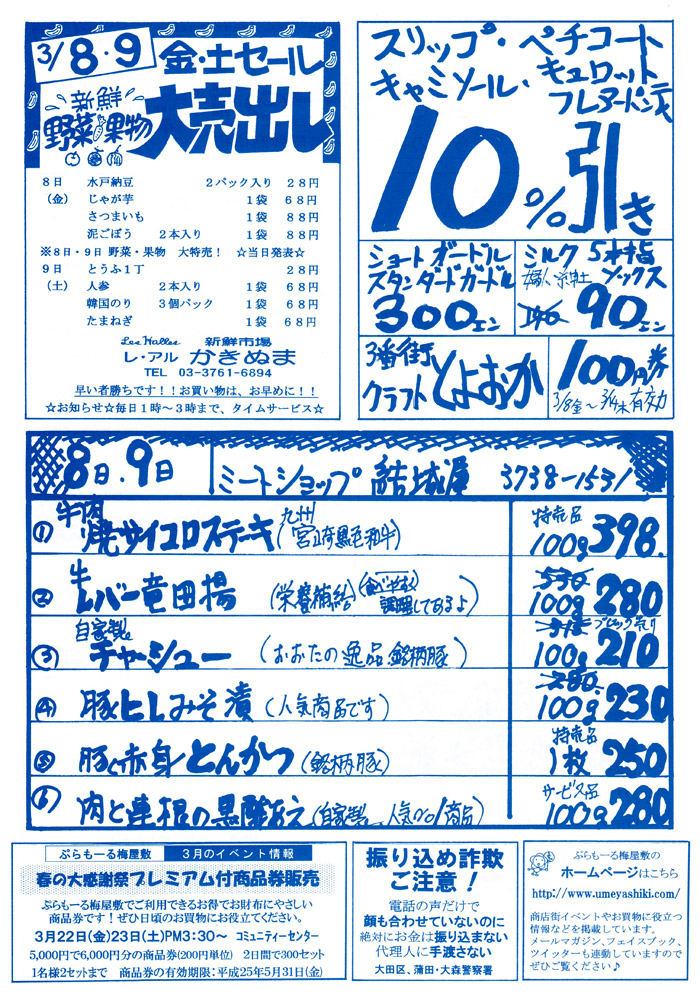 3/8・9 金・土セール
新鮮
野菜・果物 大売出し
8日 水戸納豆 2パック入り 28円
(金) じゃが芋 1袋 68円
さつまいも 1袋 88円
泥ごぼう 2本入り 1袋 88円
※8日・9日 野菜・果物 大特売! ☆当日発表☆
9日 とうふ1丁 28円
(土) 人参 2本入り 1袋 68円
韓国のり 3個パック 1袋 68円
たまねぎ 1袋 68円
Les Halles 新鮮市場
レ・アル かきぬま
TEL 03-3761-6894
早い者勝ちです!!お買い物は、お早めに!!
☆お知らせ☆毎日1時~3時まで、タイムサービス☆
スリップ・ペチコート
キャミソール・キュロット
フレアーパンツ
10%引き
ショートガードル
スタンダードガードル
300エン
ミルク 5本指
婦人・紳士 ソックス
190 90エン
3番街
クラフト とよおか
100円券
3/8金~3/14木有効
8日.9日 ミートショップ 結城屋 3738-1531
① 牛肉焼サイコロステーキ (九州 宮崎県黒毛和牛) 特売品 100g 398.
② 牛レバー竜田揚 (栄養補給) (調理してあるよ) 530 100g 280
③ 自家製チャーシュー (おおたの逸品.銘柄豚) 318 ブロック売り 100g 210
④ 豚ヒレみそ漬 (人気商品です) 280. 100g 230
⑤ 豚赤身とんかつ (銘柄豚) 特売品 1枚 250
⑥ 肉と連根の黒酢あえ (自家製 人気No1商品) サービス品 100g 280
ぷらもーる梅屋敷 3月のイベント情報
春の大感謝祭プレミアム付商品券販売
ぷらもーる梅屋敷でご利用できるお得でお財布にやさしい
商品券です!ぜひ日頃のお買物にお役立てください。
3月22日(金)23日(土)PM3:30~ コミュニティーセンター
5,000円で6,000円分の商品券(200円単位) 2日間で300セット
1名様2セットまで 商品券の有効期限:平成25年5月31日(金)
振り込め詐欺
ご注意!
電話の声だけで
顔も合わせていないのに
絶対にお金は振り込まない
代理人に手渡さない
大田区、蒲田・大森警察署
ぷらもーる梅屋敷の
ホームページはこちら
http://www.umeyashiki.com/
商店街イベントやお買物に役立つ
情報などを掲載しています。
メールマガジン、フェイスブック、
ツイッターも連動していますので
ぜひご覧ください♪